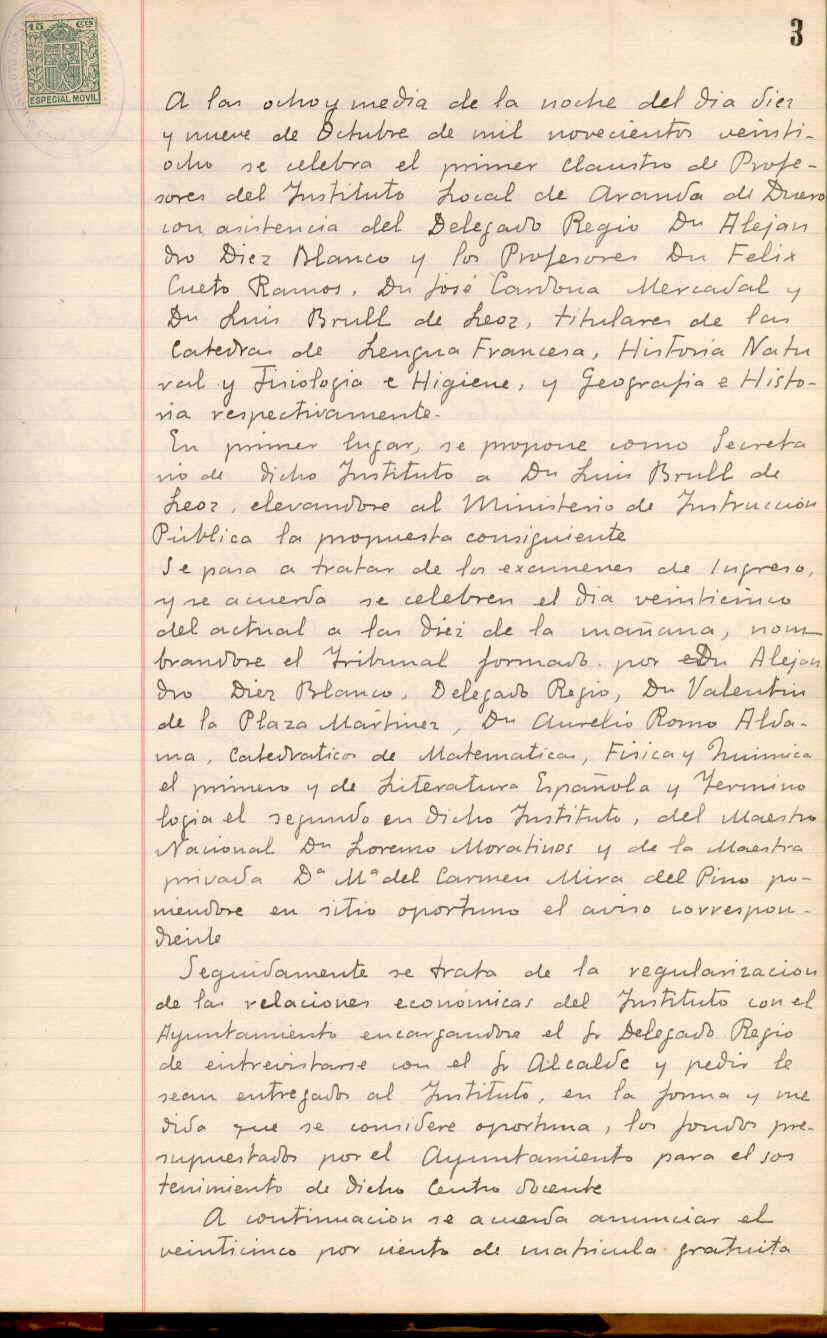 3
15 Cts
ESPECIAL MOVIL
A las ocho y media de la noche del dia diez
y nueve de Octubre de mil novecientos veinti-
ocho se celebra el primer claustro de Profe-
sores del Instituto Local de Aranda de Duero
con asistencia del Delegado Regio Dn Alejan
dro Diez Blanco y los Profesores Dn Felix
Cueto Ramos, Dn José Cardona Mercadal y
Dn Luis Brull de Leoz, titulares de las
Catedras de Lengua Francesa, Historia Natu
ral y Fisiologia e Higiene, y Geografia e Histo-
ria respectivamente.
En primer lugar, se propone como Secreta
rio de dicho Instituto a Dn Luis Brull de
Leoz, elevandose al Ministerio de Instrucción
Pública la propuesta consiguiente
Se pasa a tratar de los examenes de Ingreso,
y se acuerda se celebren el dia veinticinco
del actual a las diez de la mañana, nom
brandose el Tribunal formado por Dn Alejan
dro Diez Blanco, Delegado Regio, Dn Valentin
de la Plaza Martinez, Dn Aurelio Romo Alda-
ma, Catedraticos de Matematicas, Fisica y Quimica
el primero y de Literatura Española y Termino
logia el segundo en dicho Instituto, del Maestro
Nacional Dn Lorenzo Moratinos y de la Maestra
privada Dª Mª del Carmen Mira del Pino po-
niendose en sitio oportuno el aviso correspon-
diente
Seguidamente se trata de la regularizacion
de las relaciones económicas del Instituto con el
Ayuntamiento encargandose el Sr Delegado Regio
de entrevistarse con el Sr Alcalde y pedir le
sean entregados al Instituto, en la forma y me
dida que se considere oportuna, los fondos pre-
supuestados por el Ayuntamiento para el sos
tenimiento de dicho Centro docente
A continuacion se acuerda anunciar el
veinticinco por ciento de matricula gratuita